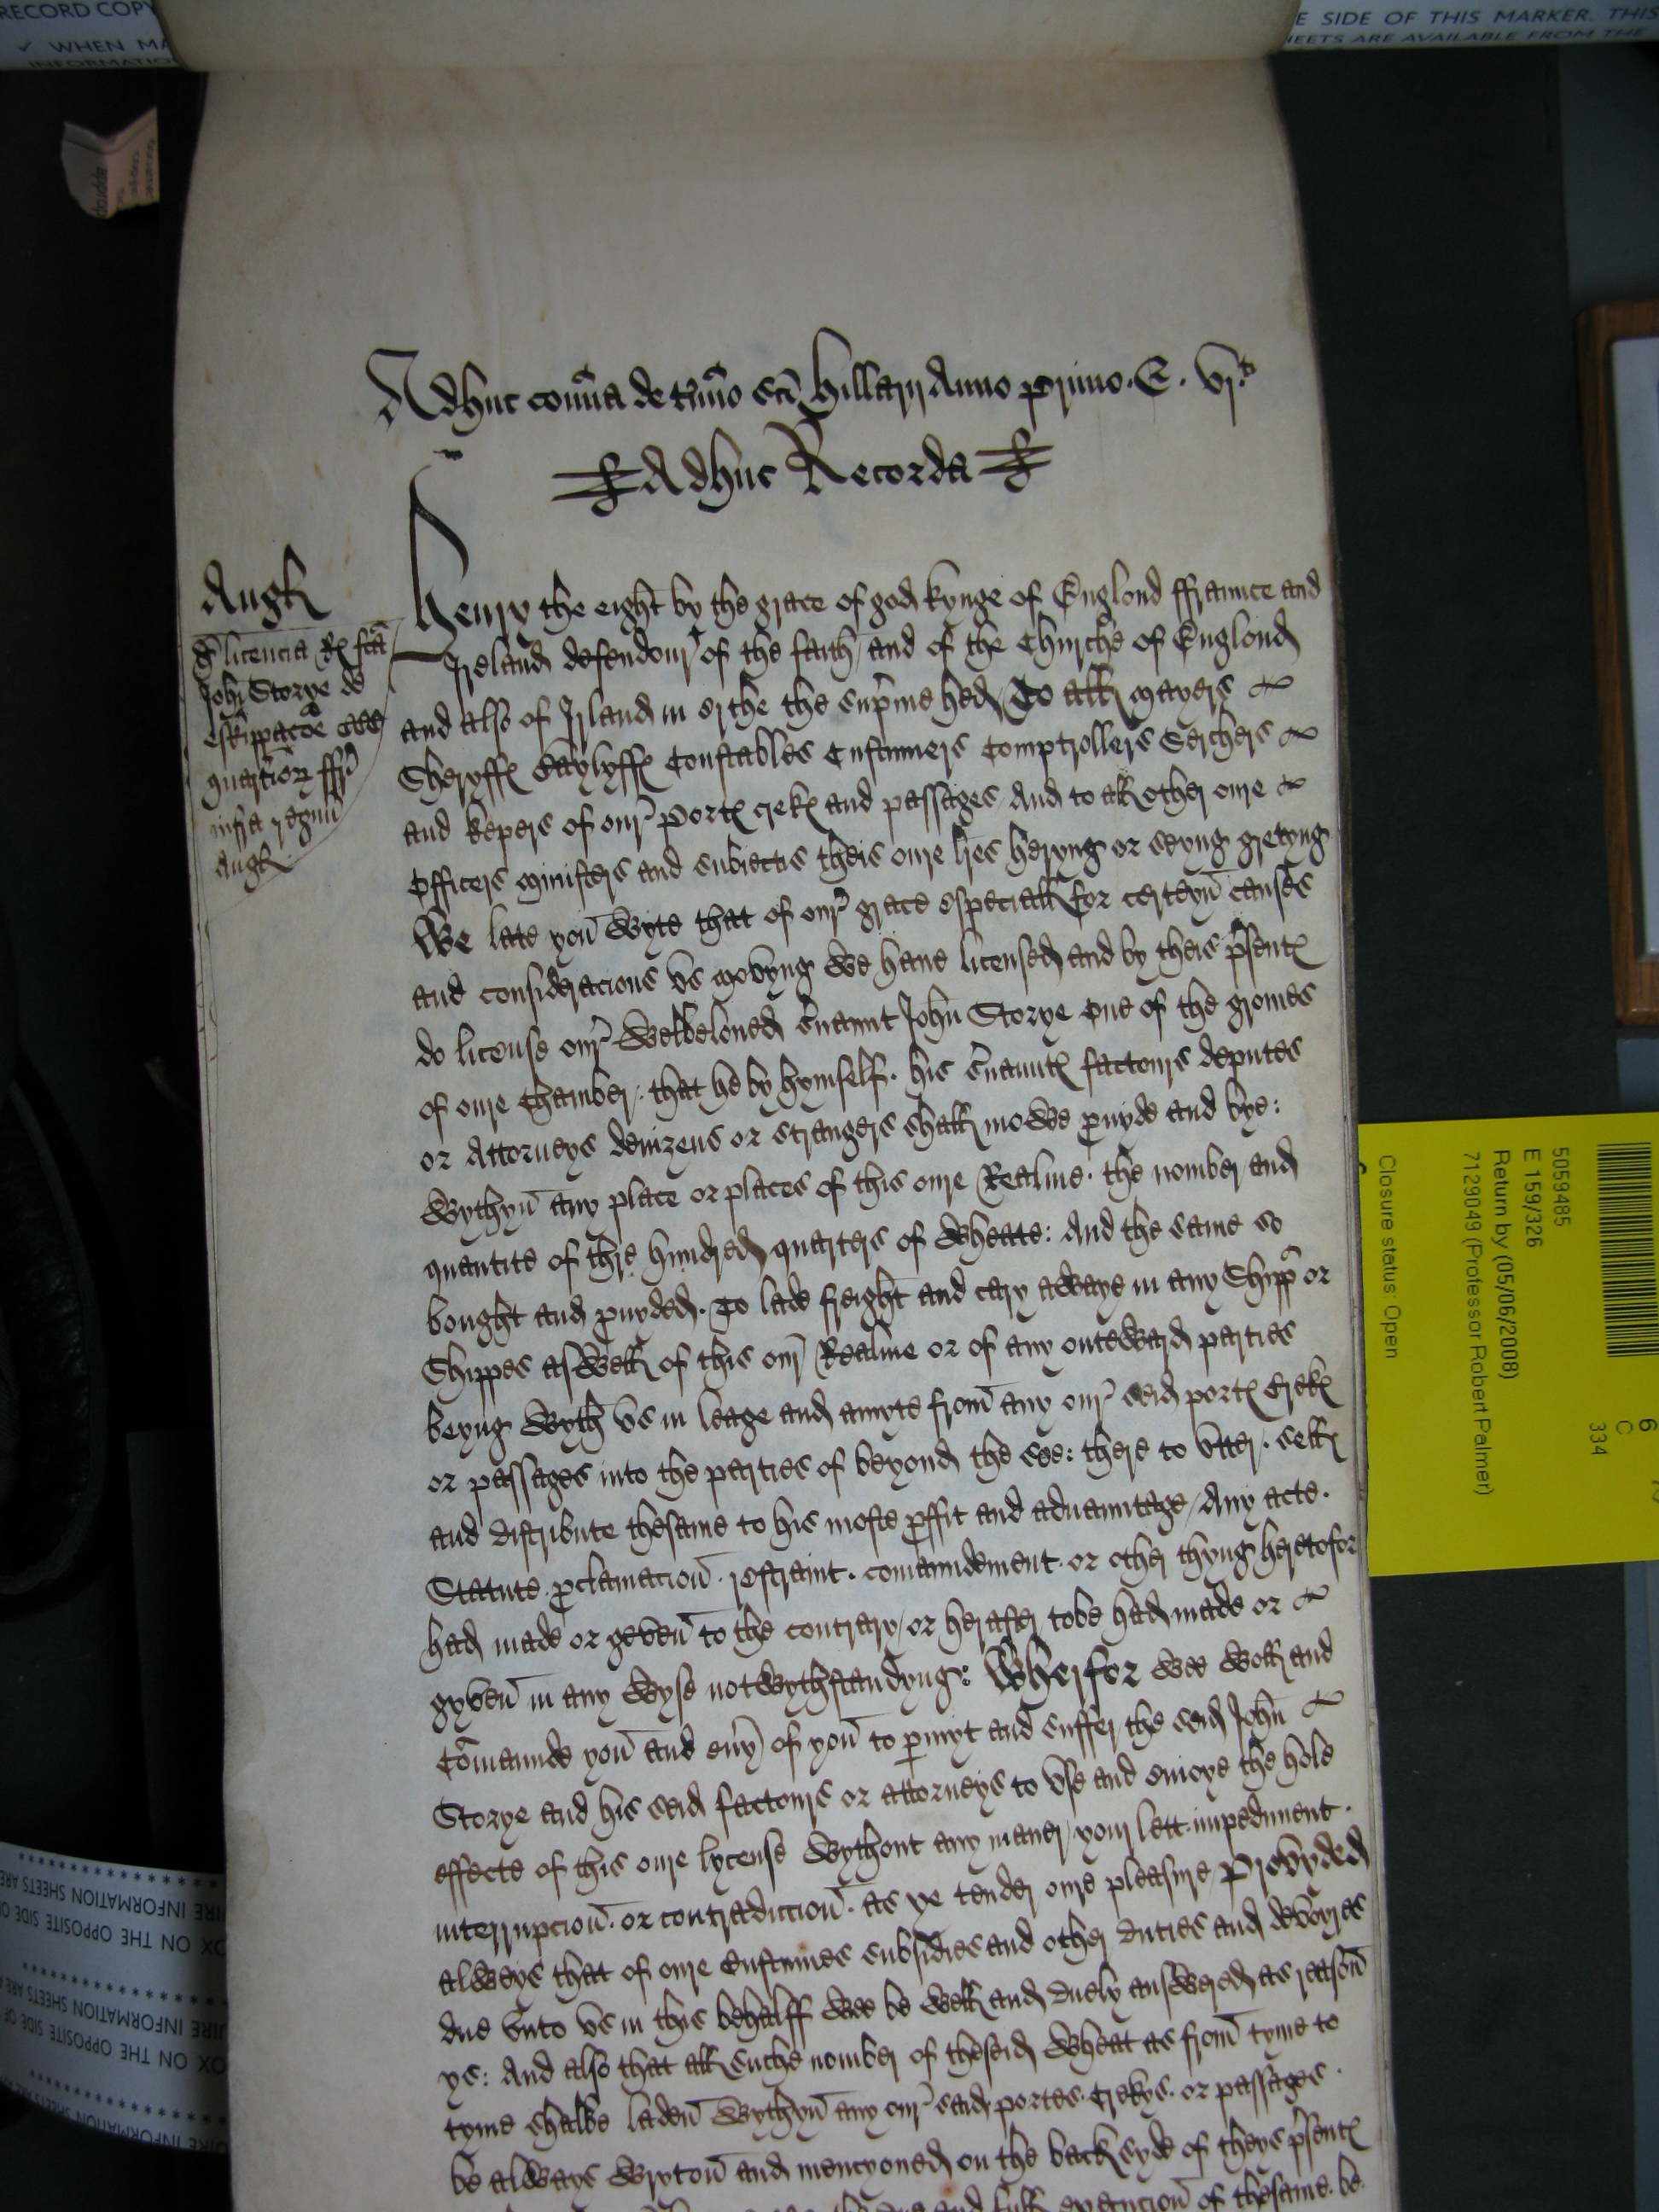 RECORD COPY
✓ WHEN MA
INFORMATIO
E SIDE OF THIS MARKER. THIS
HEETS ARE AVAILABLE FROM THE
Adhuc coi͞a de t͞mio sc͞i hillarij Anno primo . E . vjti
Adhuc Recorda
Angł
licencia Rꝭ
John Storye de
infra regnu͞
Angł
Henry the eight by the grace of god kynge of Englond ffraunce and
Ireland defendour of the faith and of the Churche of Englond
and also of Irland in erthe the sup͞me hed To all mayers
Sheryffꝭ Baylyffꝭ Constables Custumers Comptrollers Serchers
and kepers of our portꝭ crekꝭ and passages And to all other oure
Officers ministers and subiectes theis oure l͞res heryng or seyng gretyng
We late you͞ wyte that of our grace especiall for certeyn͞ causes
and consideracions vs movyng we haue licensed and by theis p͞sentꝭ
do license our welbeloued s͞uaunt John Storye one of the gromes
of oure chamber . that he by hymself . his s͞uauntꝭ factours deputes
or Attorneys denizens or strangers shall mowe ꝓuyde and bye :
wythyn͞ any place or places of this oure Realme . the nomber and
quantite of thre hundred quarters of wheate : And the same so
bought and ꝓuyded . To lade freight and cary awaye in any Shipp or
Shippes aswell of this our Realme or of any outeward parties
beyng wyth vs in leage and amyte from͞ any our seid portꝭ Crekꝭ
or passages into the parties of beyond the see : there to vtter . sell
and distribute thesame to his moste ꝓffit and aduauntage / Any acte .
Statute . ꝓclamacion͞ . restraint . comaundement . or other thyng heretofor
had made or geven͞ to the contrary / or herafter tobe had made or
gyven͞ in any wyse notwythstandyng : Wherfor wee woll and
Co͞maunde you͞ and eu͞y of you͞ to ꝑmyt and suffer the seid John
Storye and his seid factours or attorneys to vse and enioye the hole
effecte of this oure lycense wythout any maner your lett impediment .
interrupcion͞ . or contradiccion͞ . as ye tender oure pleasure / Provyded
alweys that of oure Custumes subsidies and other duties and devoyres
due vnto vs in this behalff wee be well and duely answered as reason͞
ys : And also that all suche nomber of theseid wheat as from͞ tyme to
tyme shalbe laden͞ wythyn͞ any our said portes . Crekys . or passages .
be always wryton͞ and mencyoned on the backsyde of theys p͞sentꝭ
the due and full execucion͞ of thesame . be
5059485
E 159/326
Return by (05/06/2008)
7129049 (Professor Robert Palmer)
Closure status: Open
6
C
334
INFORMATION SHEETS ARE
OX ON THE OPPOSITE SIDE OF
UIRE INFORMATION SHEETS ARE
OX ON THE OPPOSITE SIDE OF
UIRE INFORMATION SHEETS ARE